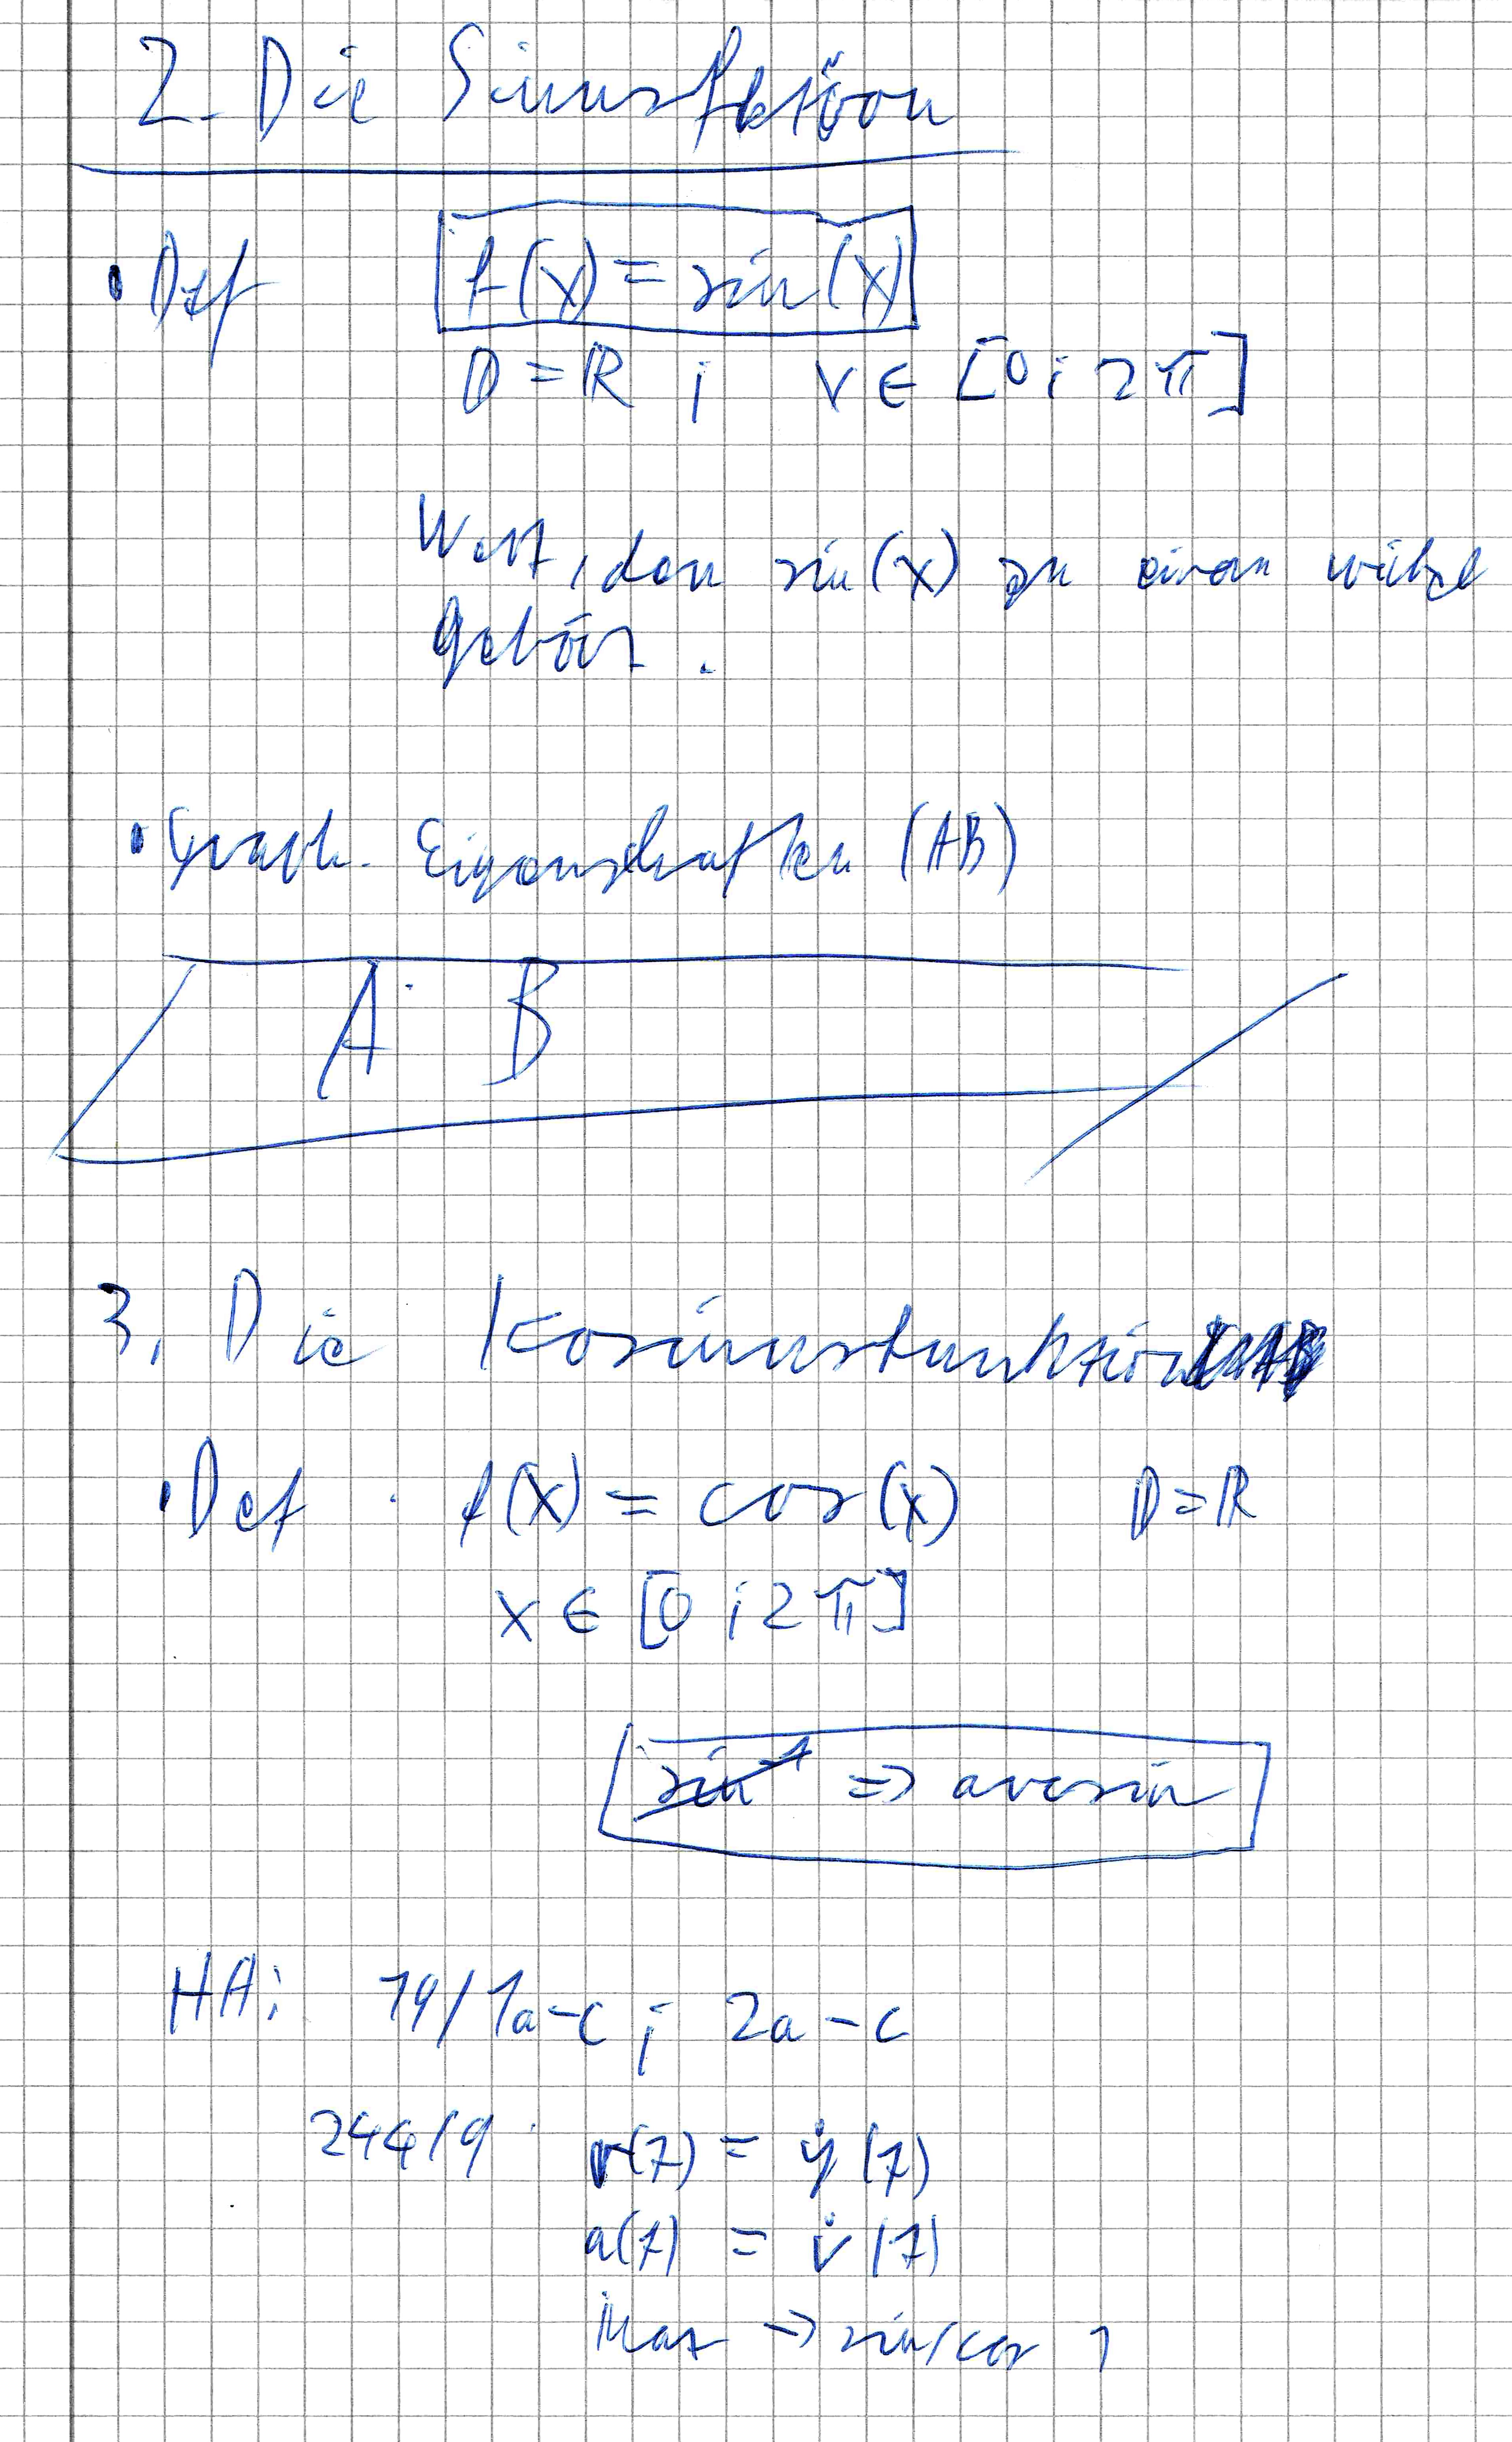 2. Die Sinusfktion
• Def f(x) = sin(x)
D = ℝ ; x ∈ [0 ; 2π]
Wert, den sin(x) zu einem wikel
gehört.
• Graph. Eigenschaften (AB)
A B
3. Die Kosinusfunktion
• Def f(x) = cos(x) D = ℝ
x ∈ [0 ; 2π]
sin⁻¹ => arcsin
HA: 19/1a-c ; 2a-c
244/9 v(t) = ẏ(t)
a(t) = v̇(t)
Max -> sin/cos 1